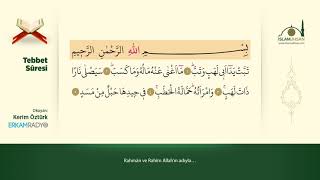 Tebbet
Sûresi
Okuyan:
Kerim Öztürk
ERKAMRADYO
İSLAM&İHSAN
بِسْمِ اللّٰهِ الرَّحْمٰنِ الرَّحِيمِ
تَبَّتْ يَدَٓا اَبِي لَهَبٍ وَتَبَّ مَٓا اَغْنٰى عَنْهُ مَالُهُ وَمَا كَسَبَ سَيَصْلٰى نَارًا
ذَاتَ لَهَبٍ وَامْرَاَتُهُ حَمَّالَةَ الْحَطَبِ فِي جِيدِهَا حَبْلٌ مِنْ مَسَدٍ
Rahmân ve Rahîm Allah'ın adıyla...